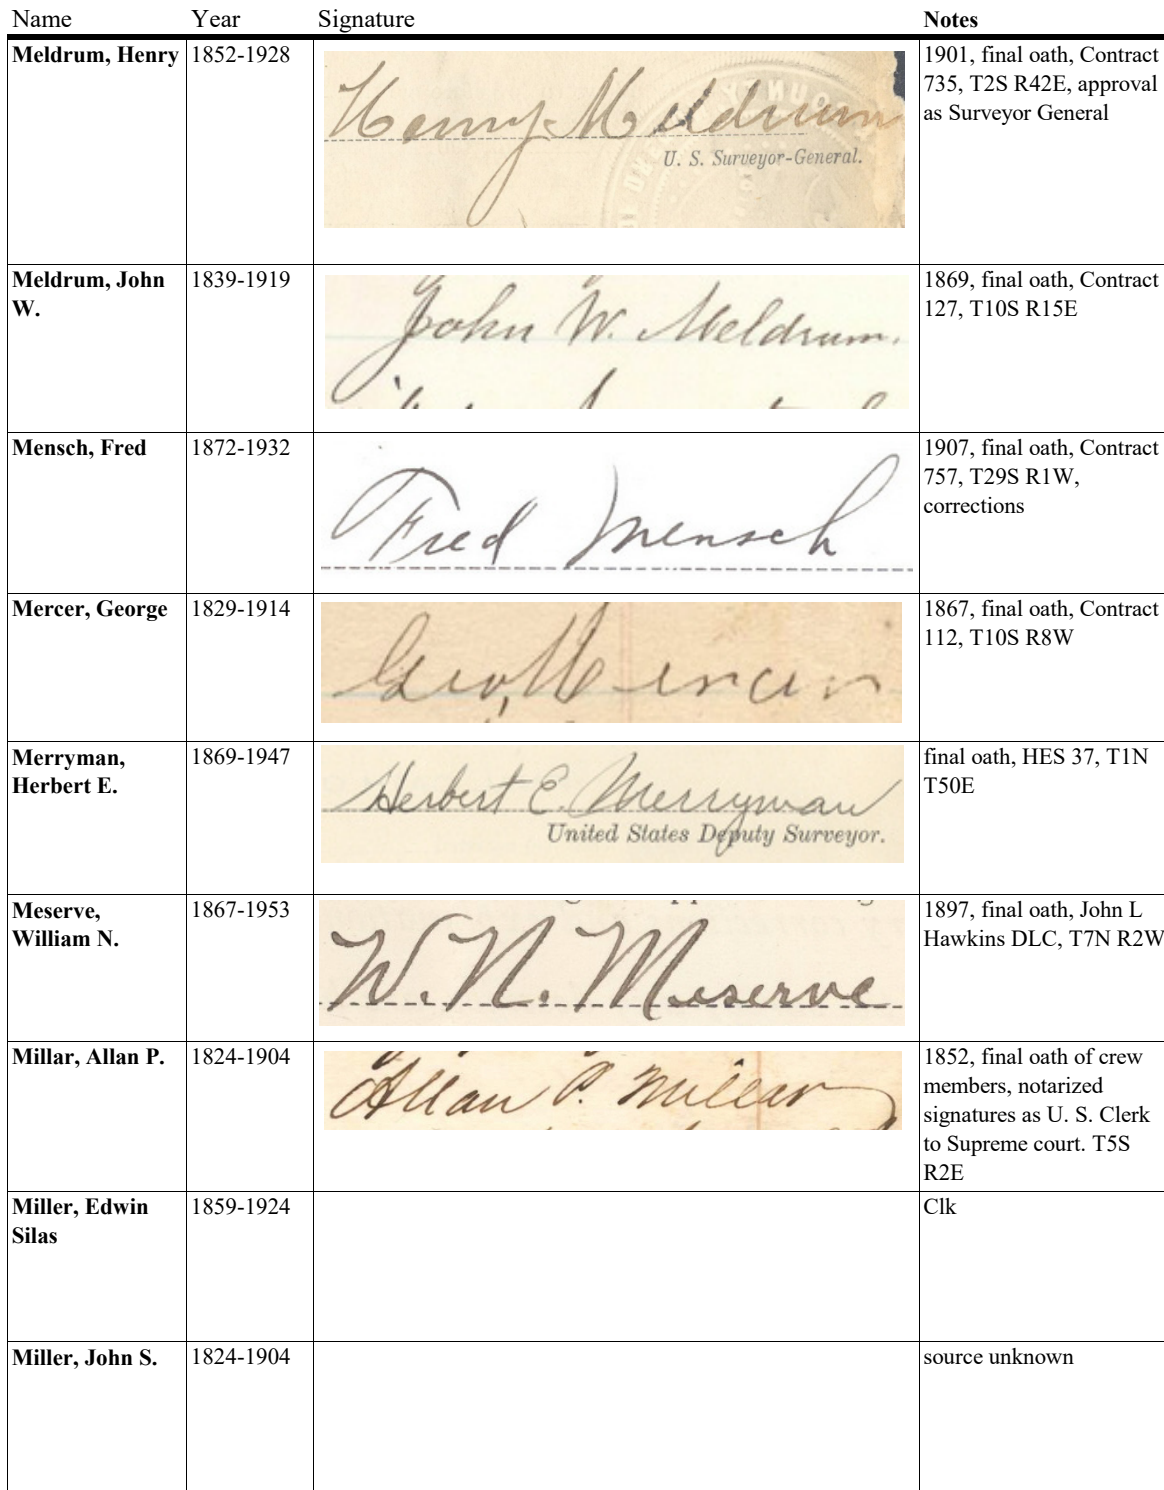 Name Year Signature Notes
Meldrum, Henry 1852-1928 Henry Meldrum 1901, final oath, Contract
735, T2S R42E, approval
as Surveyor General
U. S. Surveyor-General.
Meldrum, John 1839-1919 John W. Meldrum. 1869, final oath, Contract
W. 127, T10S R15E
Mensch, Fred 1872-1932 Fred Mensch 1907, final oath, Contract
757, T29S R1W,
corrections
Mercer, George 1829-1914 Geo, Mercer 1867, final oath, Contract
112, T10S R8W
Merryman, 1869-1947 Herbert E. Merryman final oath, HES 37, T1N
Herbert E. T50E
United States Deputy Surveyor.
Meserve, 1867-1953 W. N. Meserve 1897, final oath, John L
William N. Hawkins DLC, T7N R2W
Millar, Allan P. 1824-1904 Allan P. Millar 1852, final oath of crew
members, notarized
signatures as U. S. Clerk
to Supreme court. T5S
R2E
Miller, Edwin 1859-1924 Clk
Silas
Miller, John S. 1824-1904 source unknown